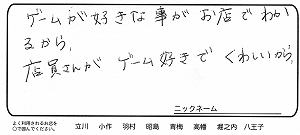 ゲームが好きな事がお店でわか
るから。
店員さんがゲーム好きでくわしいから。
ニックネーム
よく利用されるお店を
○で囲んでください。
立川 小作 羽村 昭島 青梅 高幡 堀之内 八王子